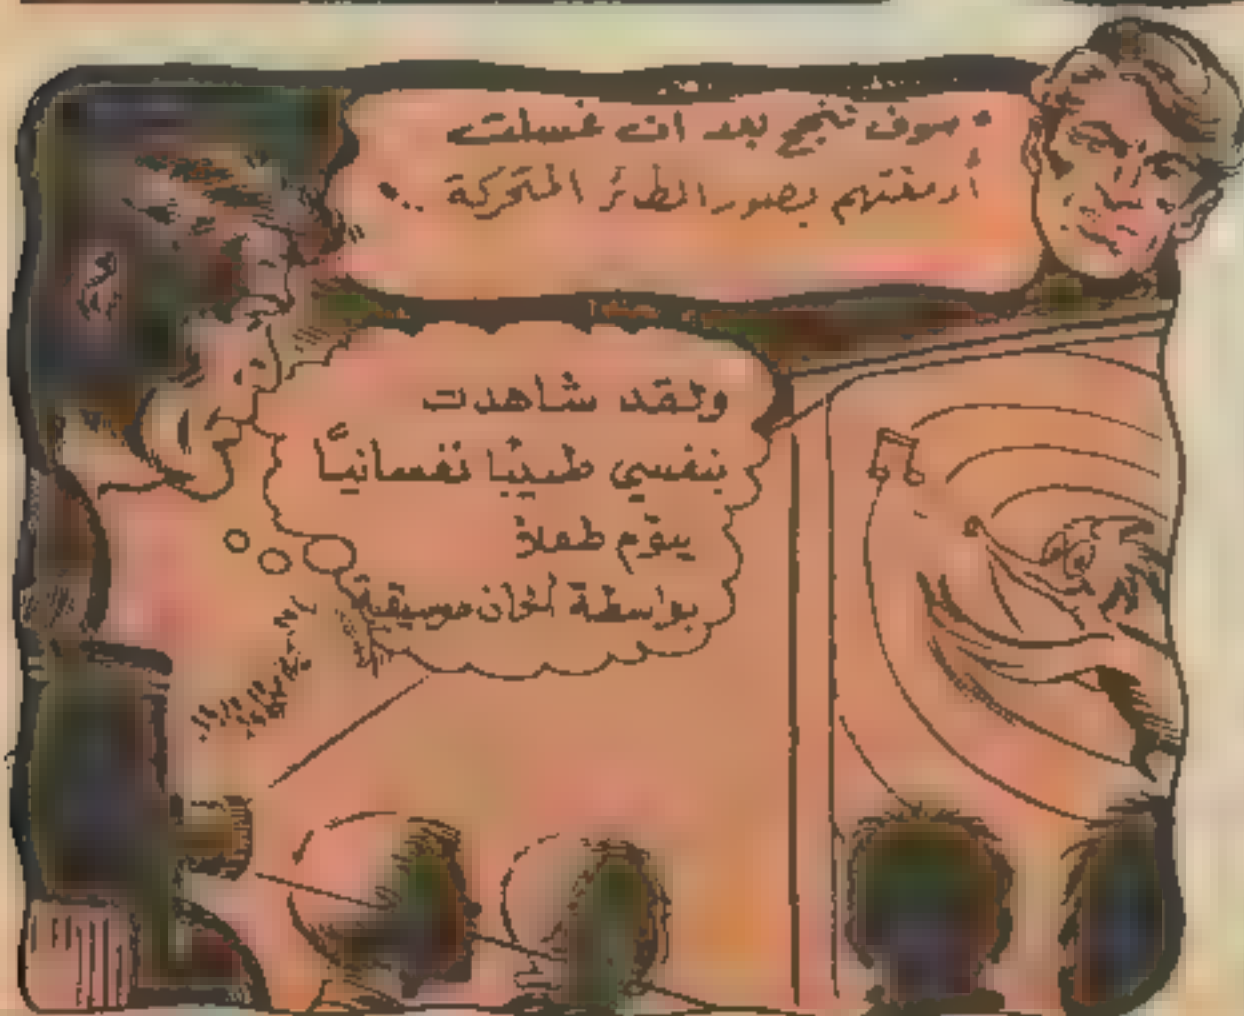 سوف تنجح بعد ان غسلت
أدمغتهم بصور الطائر المتحركة ..
ولقد شاهدت
بنفسي طبيبًا نفسانيًا
ينوّم طفلاً
بواسطة ألحان موسيقية